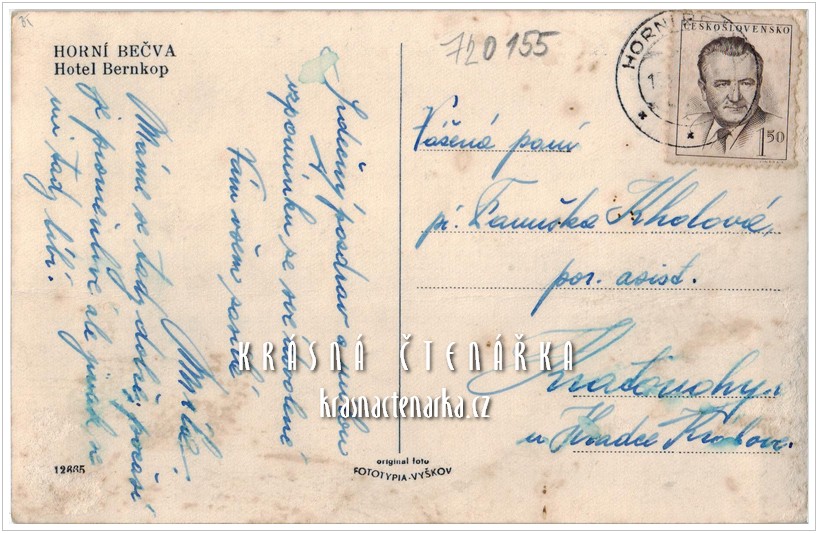 HORNÍ BEČVA
Hotel Bernkop
720155
HORNÍ
ČESKOSLOVENSKO
1 50
Srdečný pozdrav a malou
vzpomínku ze své dovolené
Vám všem posílá
Máme se tady dobře, počasí
je proměnlivé ale jinak se
mi tady líbí.
Vážená paní
pí. Fanuška Kholová,
por. asist.
Kratonohy
u Hradce Králové.
KRÁSNÁ ČTENÁŘKA
krasnactenarka.cz
12665
original foto
FOTOTYPIA-VYŠKOV